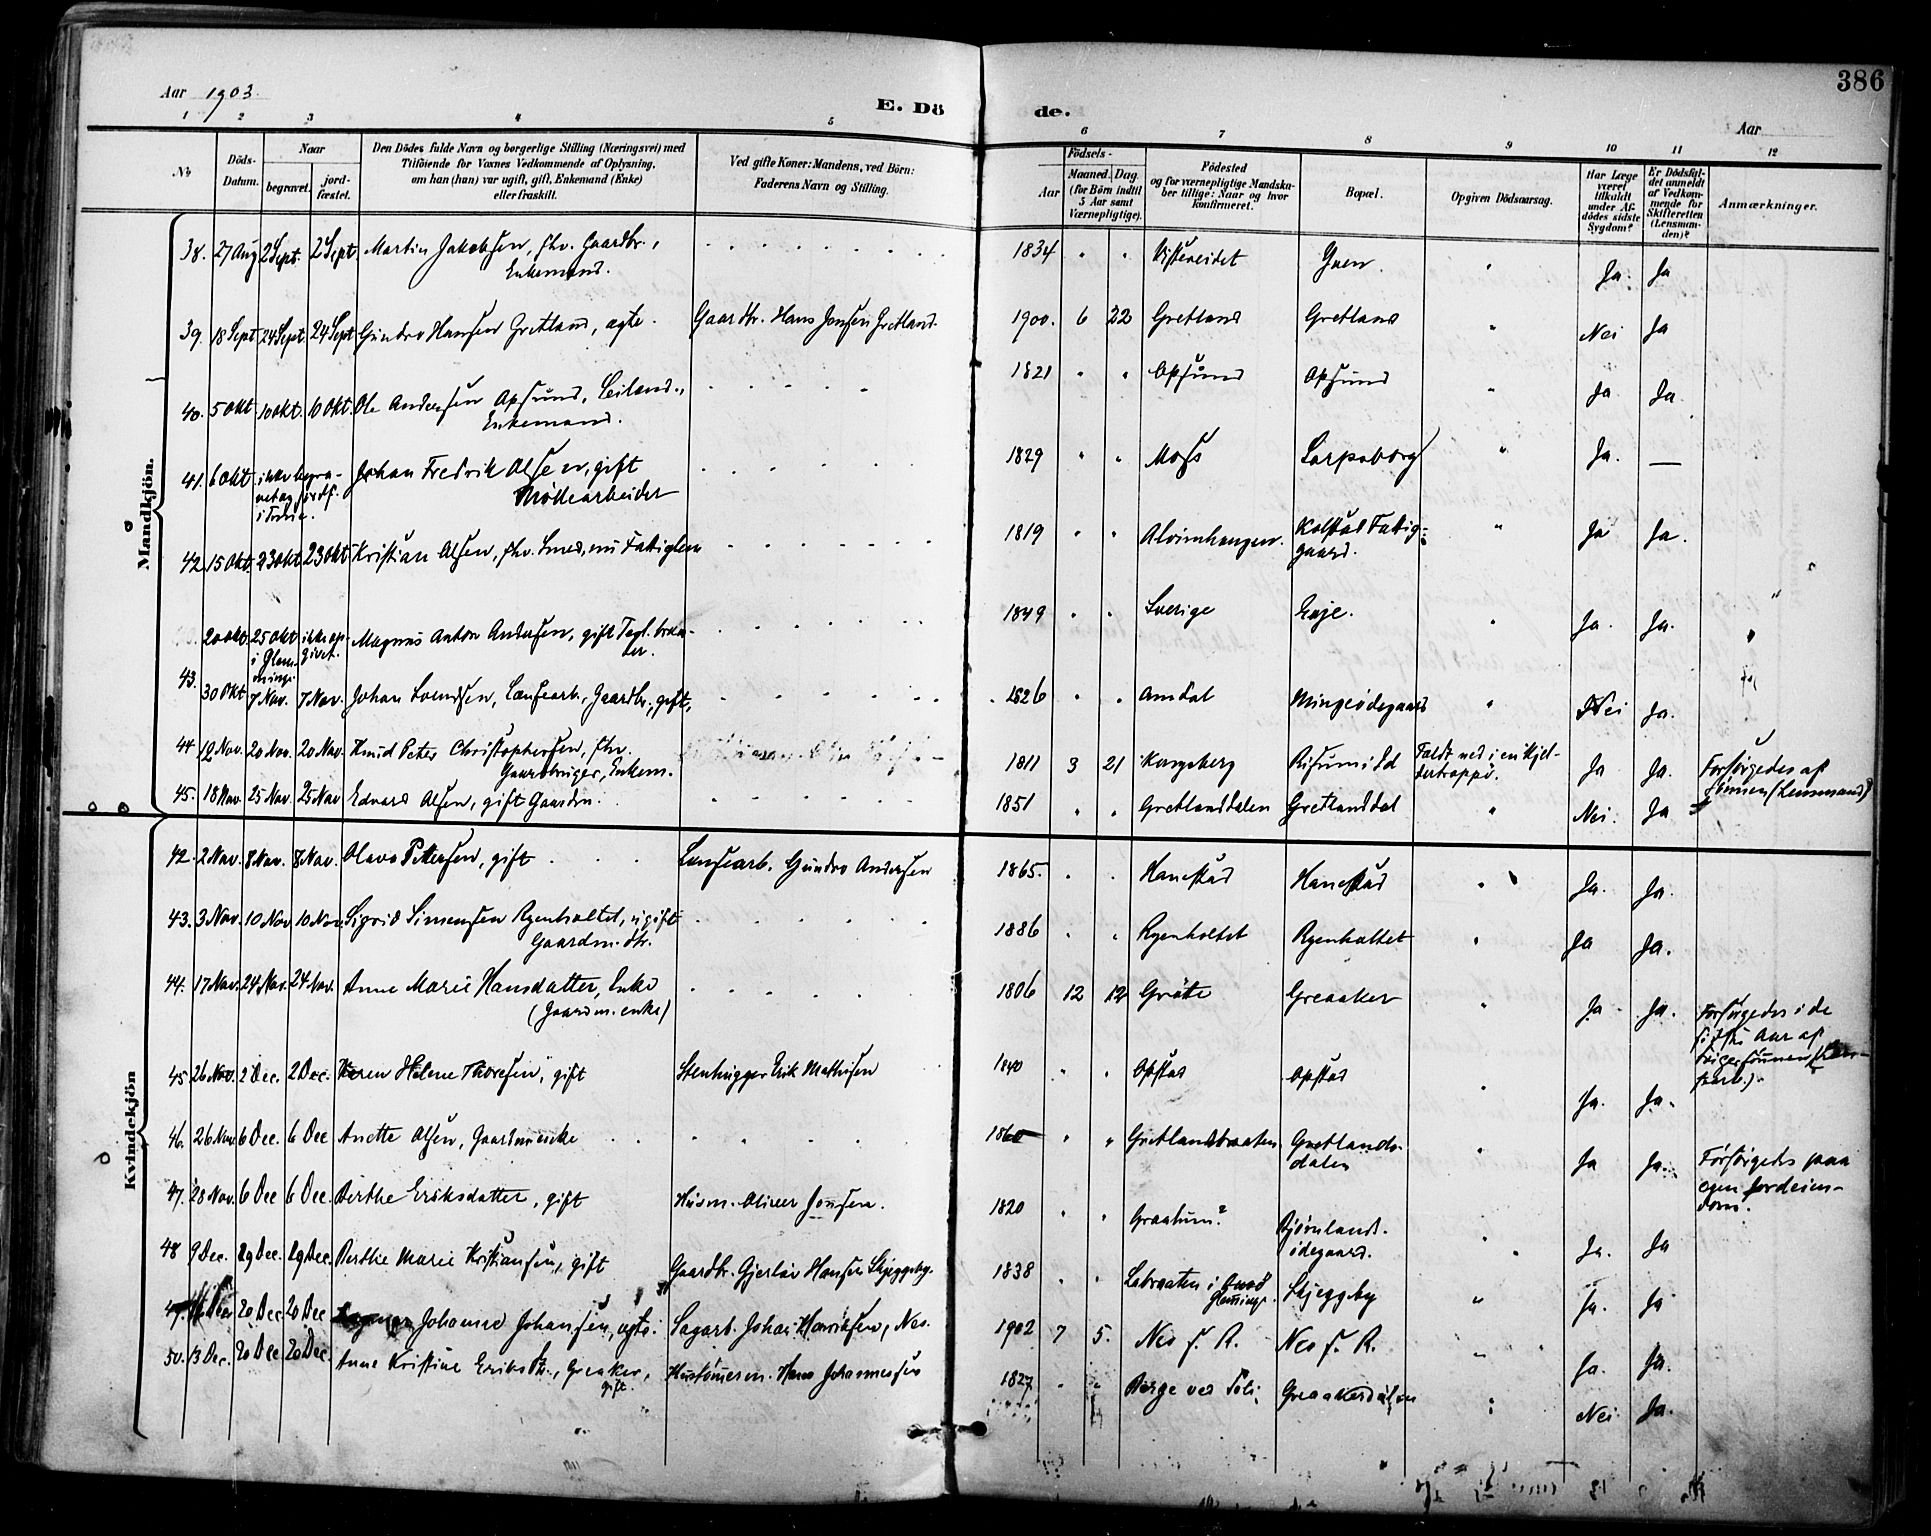 386
Aar 1903.
E. Dö de.
Aar
1 2 3 4 5 6 7 8 9 10 11 12
No
Döds-Datum.
Naar
begravet.
jord-fæstet.
Den Dödes fulde Navn og borgerlige Stilling (Næringsvei) med Tilföiende for Voxnes Vedkommende af Oplysning, om han (hun) var ugift, gift, Enkemand (Enke) eller fraskilt.
Ved gifte Koner: Mandens, ved Börn: Faderens Navn og Stilling.
Födsels-
Aar
Maaned. Dag.
(for Börn indtil 5 Aar samt Værnepligtige).
Födested og for værnepligtige Mandskaber tillige: Naar og hvor konfirmeret.
Bopæl.
Opgiven Dödsaarsag.
Har Læge været tilkaldt under Afdödes sidste Sygdom?
Er Dödsfaldet anmeldt af Vedkommende for Skifteretten (Lensmanden)?
Anmærkninger.
Mandkjön.
38. 27 Aug 2 Sept. 2 Sept Martin Jakobsen, fhv. Gaardbr., Enkemand. 1834 " " Vistereidet Ja. Ja
39. 18 Sept 24 Sept 24 Sept Gundro Hansen Gretland, ægte. Gaardbr. Hans Jensen Gretland. 1900. 6 22 Gretland Gretland " Nei Ja
40. 5 Okt 10 Okt. 10 Okt. Ole Andersen Opsund, Enkemand. 1821 " " Opsund Opsund " Ja Ja.
41. 6 Okt ikke begravet og jordf. i Tune. Johan Fredrik Olsen, gift Möllearbeider 1829 " " Moss Sarpsborg " Ja. —
42. 15 Okt. 23 Okt 23 Okt Kristian Olsen, fhv. Smed, nu Fattiglem 1819 " " Alvimhaugen. Kolstad Fattiggaard. " Ja Ja.
43. 20 Okt. 25 Okt i Glemminge ikke opgivet. Magnus Anton Andersen, gift Teglbrænder. 1849 " " Sverige Enje. " Ja. Ja.
30 Okt 7 Nov. 7 Nov. Johan Svendsen, Landsearb., Gaardbr., gift, 1826 " " Omdal Mingeödegaard " Nei Ja.
44 12 Nov. 20 Nov. 20 Nov. Knud Peter Christophersen, fhv. Gaardbruger, Enkem. 1811 3 21 Kongsberg Risum i Id Faldt ned i en Kjeldertrappe. Ja Ja. Forsörgedes af Sönnen (Lensmand)
45. 18 Nov. 25 Nov. 25 Nov Edvard Olsen, gift Gaardm. 1851 " " Gretlanddalen Gretlanddal " Nei. Ja
Kvindekjön
42. 2 Nov. 8 Nov. 8 Nov. Olava Pettersen, gift Landsearb. Gundro Andersen 1865. " " Hanestad Hanestad " Ja. Ja.
43. 3 Nov. 10 Nov 10 Nov. Sigrid Simensen Ryenholtet, ugift Gaardm. dtr. 1886 " " Ryenholtet Ryenholtet " Ja Ja.
44. 17 Nov. 24 Nov. 24 Nov. Anne Marie Hansdatter, Enke (Gaardm. enke) 1806 12 12 Gröte Greaaker " Ja Ja. Forsörgedes i de sidste Aar af Svigersönnen
45 26 Nov. 2 Dec. 2 Dec. Karen Helene Thoresen, gift Stenhugger Erik Mathisen 1840 " " Opstad Opstad " Ja. Ja.
46. 26 Nov. 6 Dec. 6 Dec Anette Olsen, Gaardmenke 1860 " " Gretlandbraaten Gretlandsdalen " Ja Ja. Forsörgedes paa egen Jordeiendom.
47. 28 Nov. 6 Dec 6 Dec. Berthe Eriksdatter, gift Husm. Oliver Jonsen. 1820 " " Graatun? Bjørnland.ödegaard. " Ja. Ja
48 9 Dec. 29 Dec. 29 Dec. Berthe Marie Kristiansen, gift Gaardbr. Gjerlöv Hansen Skjeggeby. 1838 " " Labraaten i Onsö Glemminge Skjeggeby " Ja. Ja
49. 20 Dec 20 Dec Johanne Johansen, ægte. Sagarb. Johan Henriksen, Nes. 1902 7 5. Nes f. R. Nes f. R. " Ja. Ja.
50. 13 Dec. 20 Dec 20 Dec. Anne Kristine Eriksdtr., Greaker, gift. Hustömerm. Hans Johannessen 1827 " " Berge ved Greaakerdalen " Nei Ja.